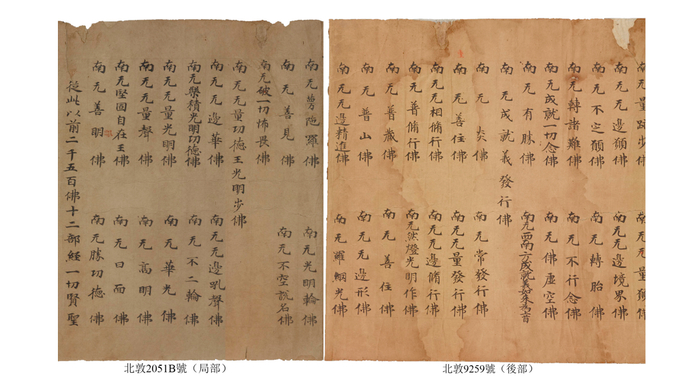 南无无量跡步佛　南无无量願佛
南无无邊願佛　南无无邊境界佛
南无不定願佛　南无轉胎佛
南无轉諸難佛　南无不行念佛
南无成就一切念佛　南无佛虛空佛
南无有勝佛　南无西南方成就義如來為首
南无成就義發行佛
南无炎佛　南无常發行佛
南无善住佛　南无无量發行佛
南无无相脩行佛　南无无邊脩行佛
南无普脩行佛　南无然燈光明作佛
南无普藏佛　南无善住佛
南无普山佛　南无无邊形佛
南无无邊精進佛　南无羅網光佛
南无陀羅佛　南无光明輪佛
南无善見佛　南无不空說名佛
南无破一切怖畏佛
南无无量功德王光明步佛
南无无邊華佛　南无无邊吼聲佛
南无積光明功德佛　南无不二輪佛
南无无量光明佛　南无華光佛
南无无量聲佛　南无高明佛
南无堅固自在王佛　南无日面佛
南无善明佛　南无勝功德佛
從此以前二千五百佛十二部經一切賢聖
北敦2051B號（局部）
北敦9259號（後部）